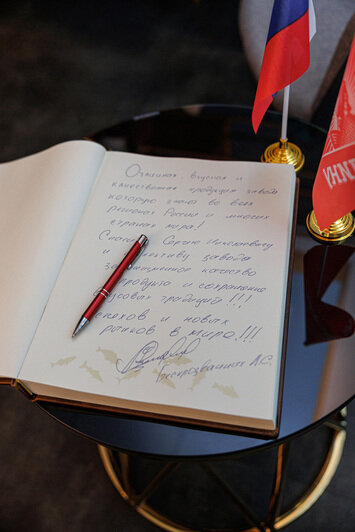 Отличная, вкусная и
качественная продукция завода
которую знают во всех
регионах России и многих
странах мира!
Спас Сергею Николаевичу
и ктиву завода
за ционное качество
продукта и сохранение
вкусовых традиций!!!
пехов и новых
тников в мире!!!
Беспрозванных А.С.